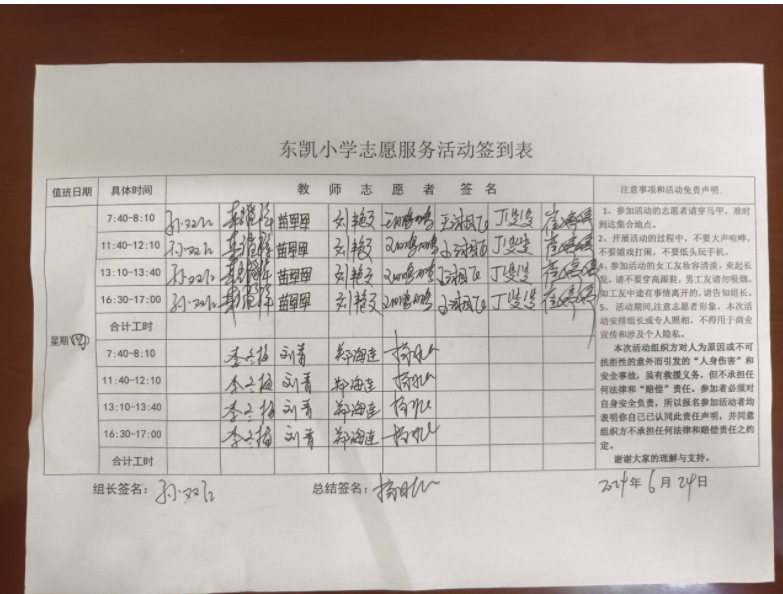 东凯小学志愿服务活动签到表
值班日期 具体时间 教师志愿者签名 注意事项和活动免责声明
7:40-8:10 苗甲甲 刘艳文 丁斐斐
11:40-12:10 苗甲甲 刘艳文 丁斐斐
13:10-13:40 苗甲甲 刘艳文 丁斐斐
16:30-17:00 苗甲甲 刘艳文 丁斐斐
合计工时
星期(四)
7:40-8:10 李冬梅 刘青 郑海连
11:40-12:10 李冬梅 刘青 郑海连
13:10-13:40 李冬梅 刘青 郑海连
16:30-17:00 李冬梅 刘青 郑海连
合计工时
1、参加活动的志愿者请穿马甲，准时
到达集合地点。
2、开展活动的过程中，不要大声喧哗，
不要嬉戏打闹，不要低头玩手机。
、参加活动的女工友妆容清淡，束起长
发，请不要穿高跟鞋，男工友请勿吸烟，
如工友中途有事情离开的，请告知组长。
5、活动期间，注意志愿者形象，本次活
动安排组长或专人照相，不得用于商业
宣传和涉及个人隐私。
本次活动组织方对人为原因或不可
抗拒性的意外而引发的“人身伤害”和
安全事故，虽有救援义务，但不承担任
何法律和“赔偿”责任。参加者必须对
自身安全负责，所以报名参加活动者均
表明你自己已认同此责任声明，并同意
组织方不承担任何法律和赔偿责任之约
定。
谢谢大家的理解与支持。
组长签名： 总结签名： 2024年6月24日